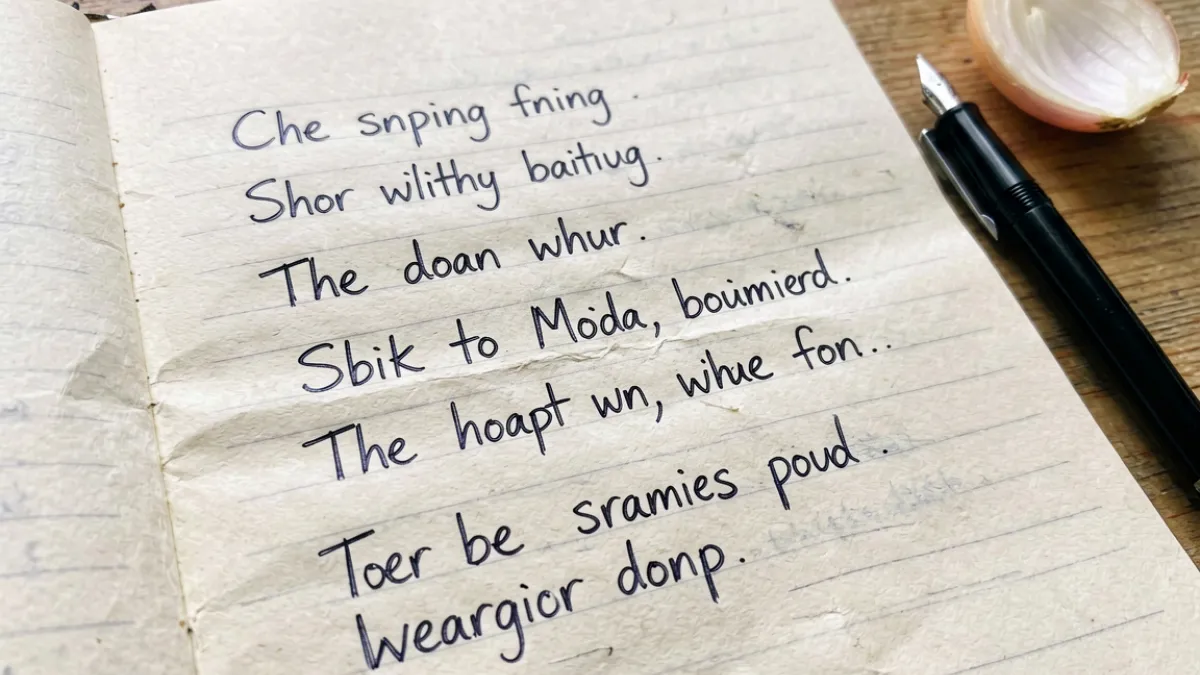 Che snping fning.
Shor wlithy baitiug.
The doan whur.
Sbik to Moda, boumierd.
The hoapt wn, whue fon..
Toer be sramies poud.
weargior donp.